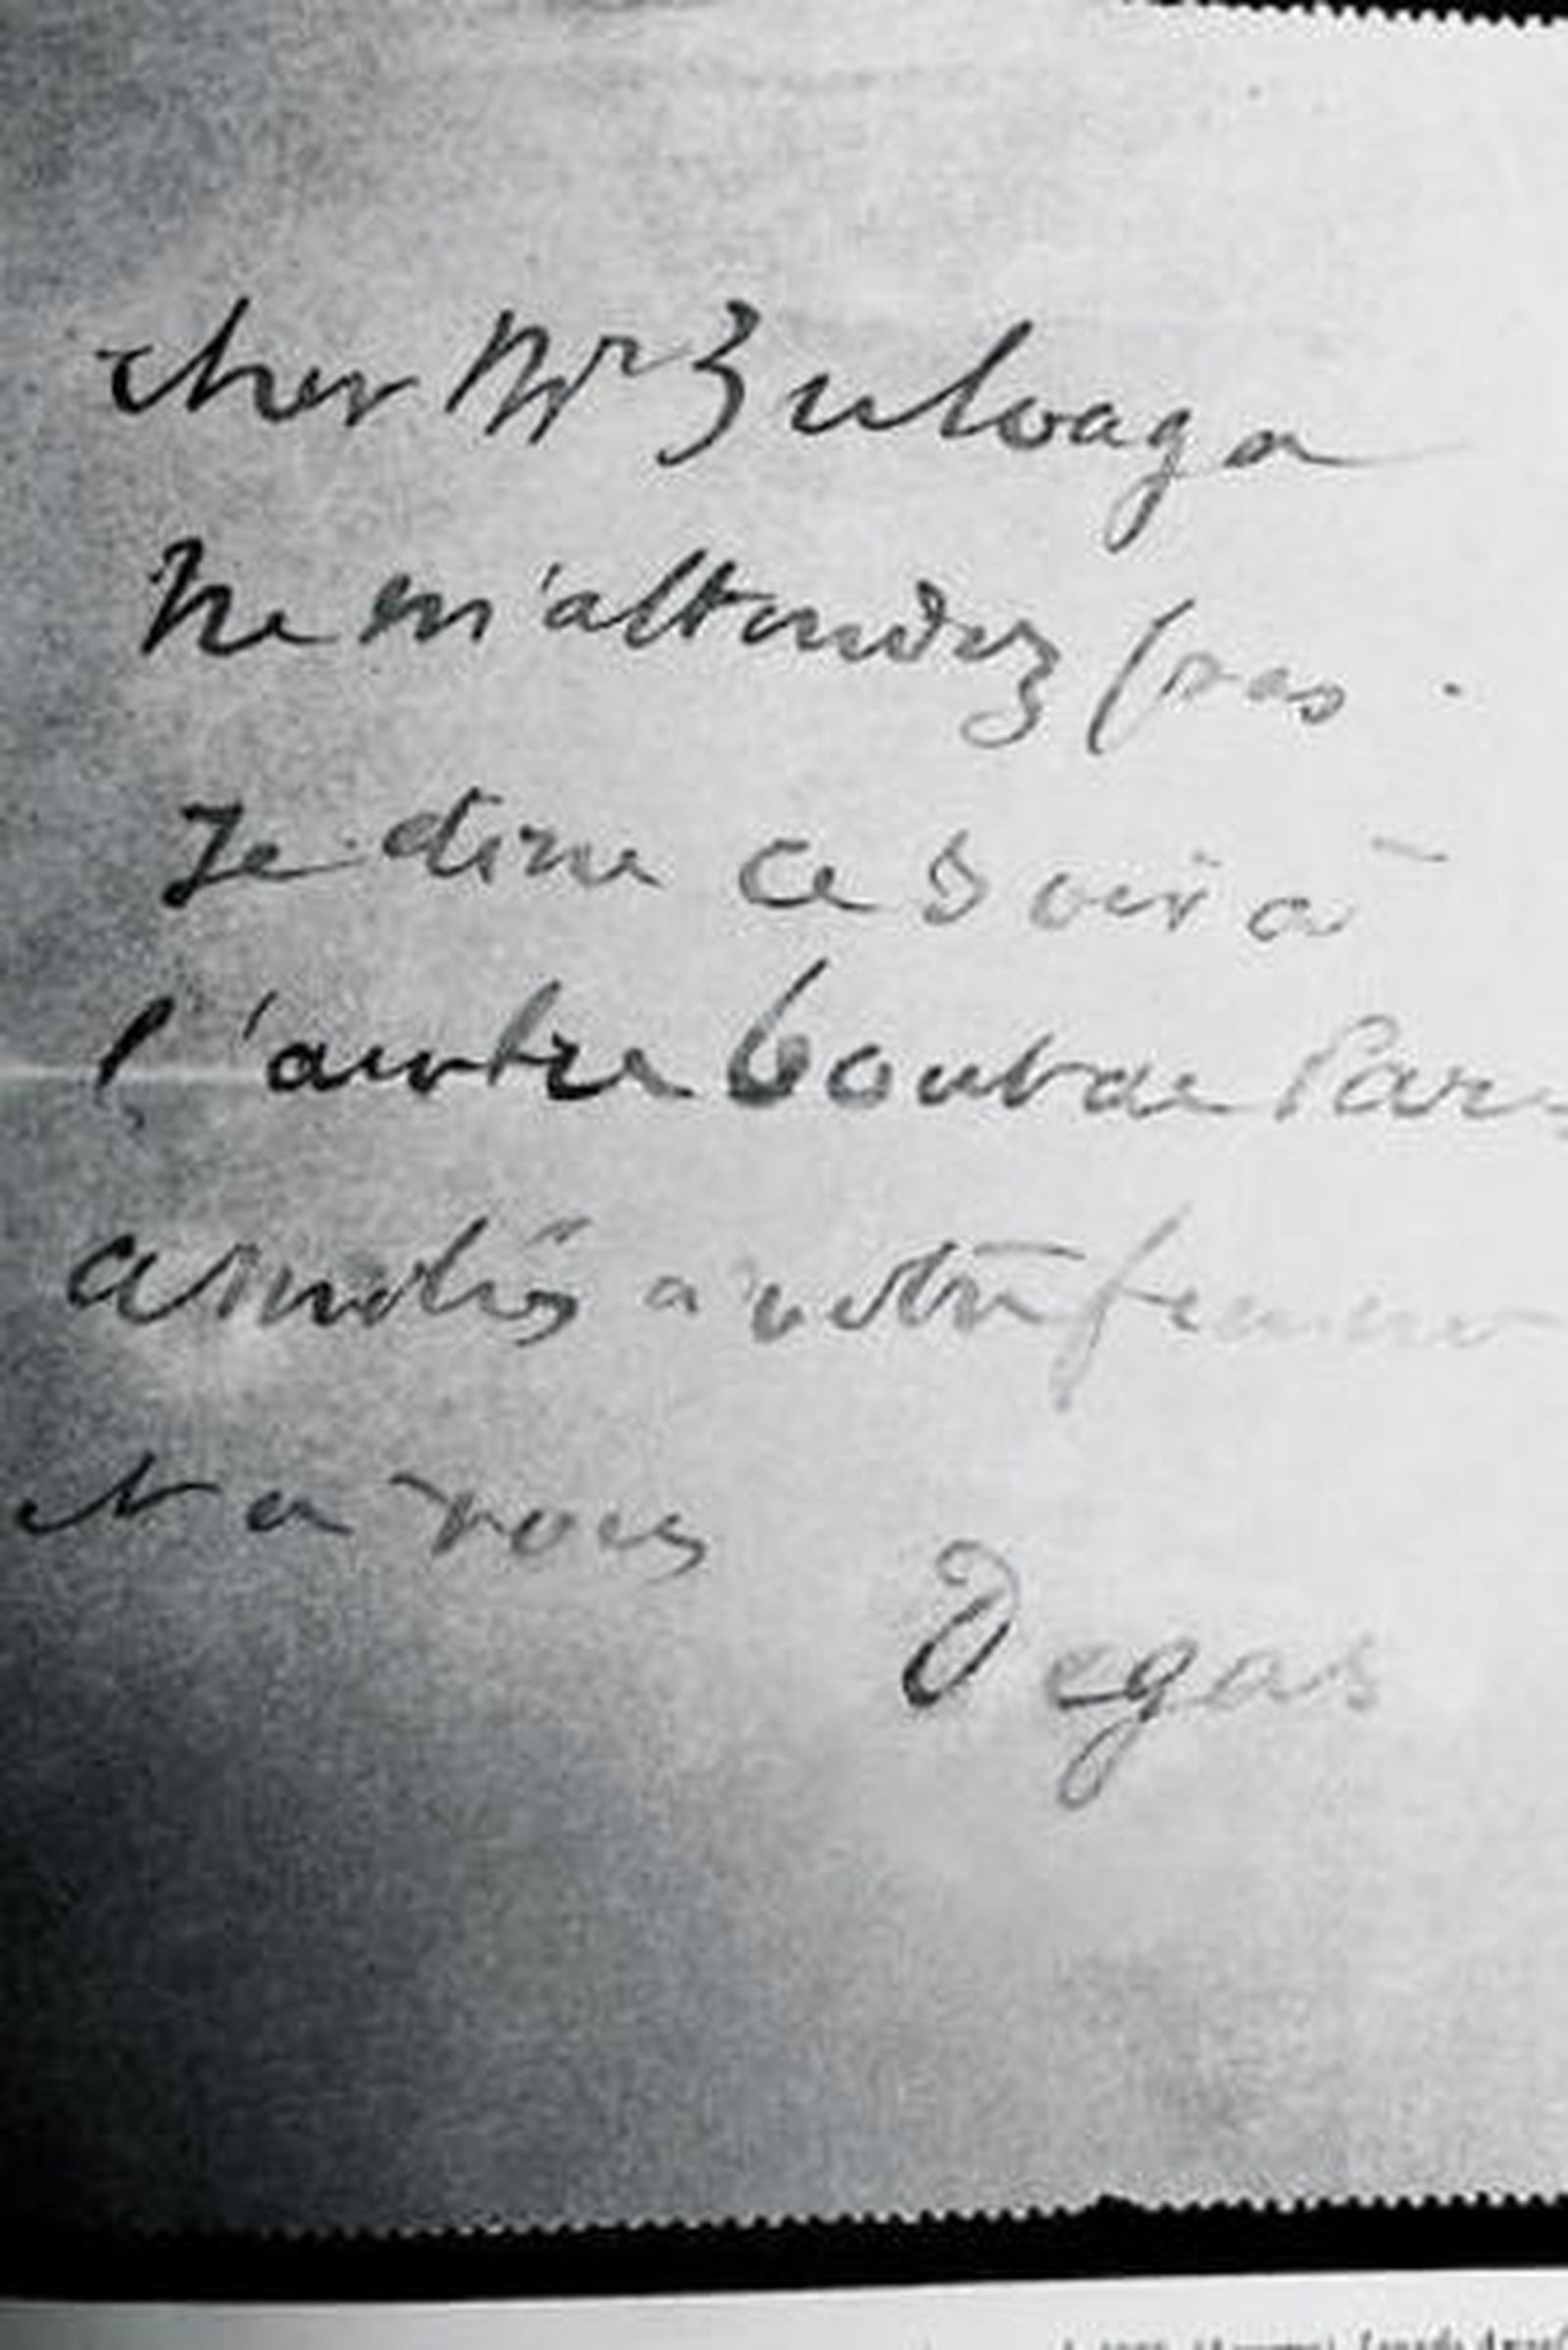 cher Mr Zuloaga
Ne m'attendez pas.
Je dine ce soir à
l'autre bout de Paris
amitiés à votre femme
et à vous
Degas